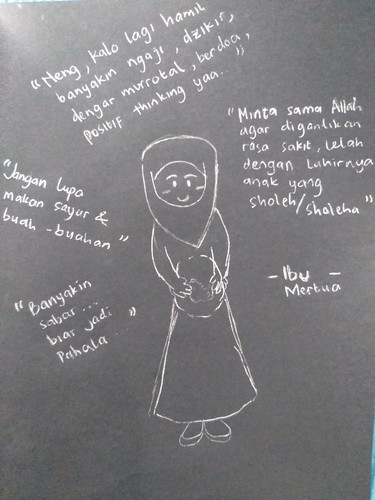 "Neng, kalo lagi hamil
banyakin ngaji, dzikir,
dengar murrotal, berdoa,
positif thinking yaa.."
"Minta sama Allah
agar digantikan
rasa sakit, lelah
dengan lahirnya
anak yang
sholeh/shaleha"
"Jangan lupa
makan sayur &
buah-buahan"
- Ibu -
Mertua
"Banyakin
sabar...
biar jadi
Pahala..."